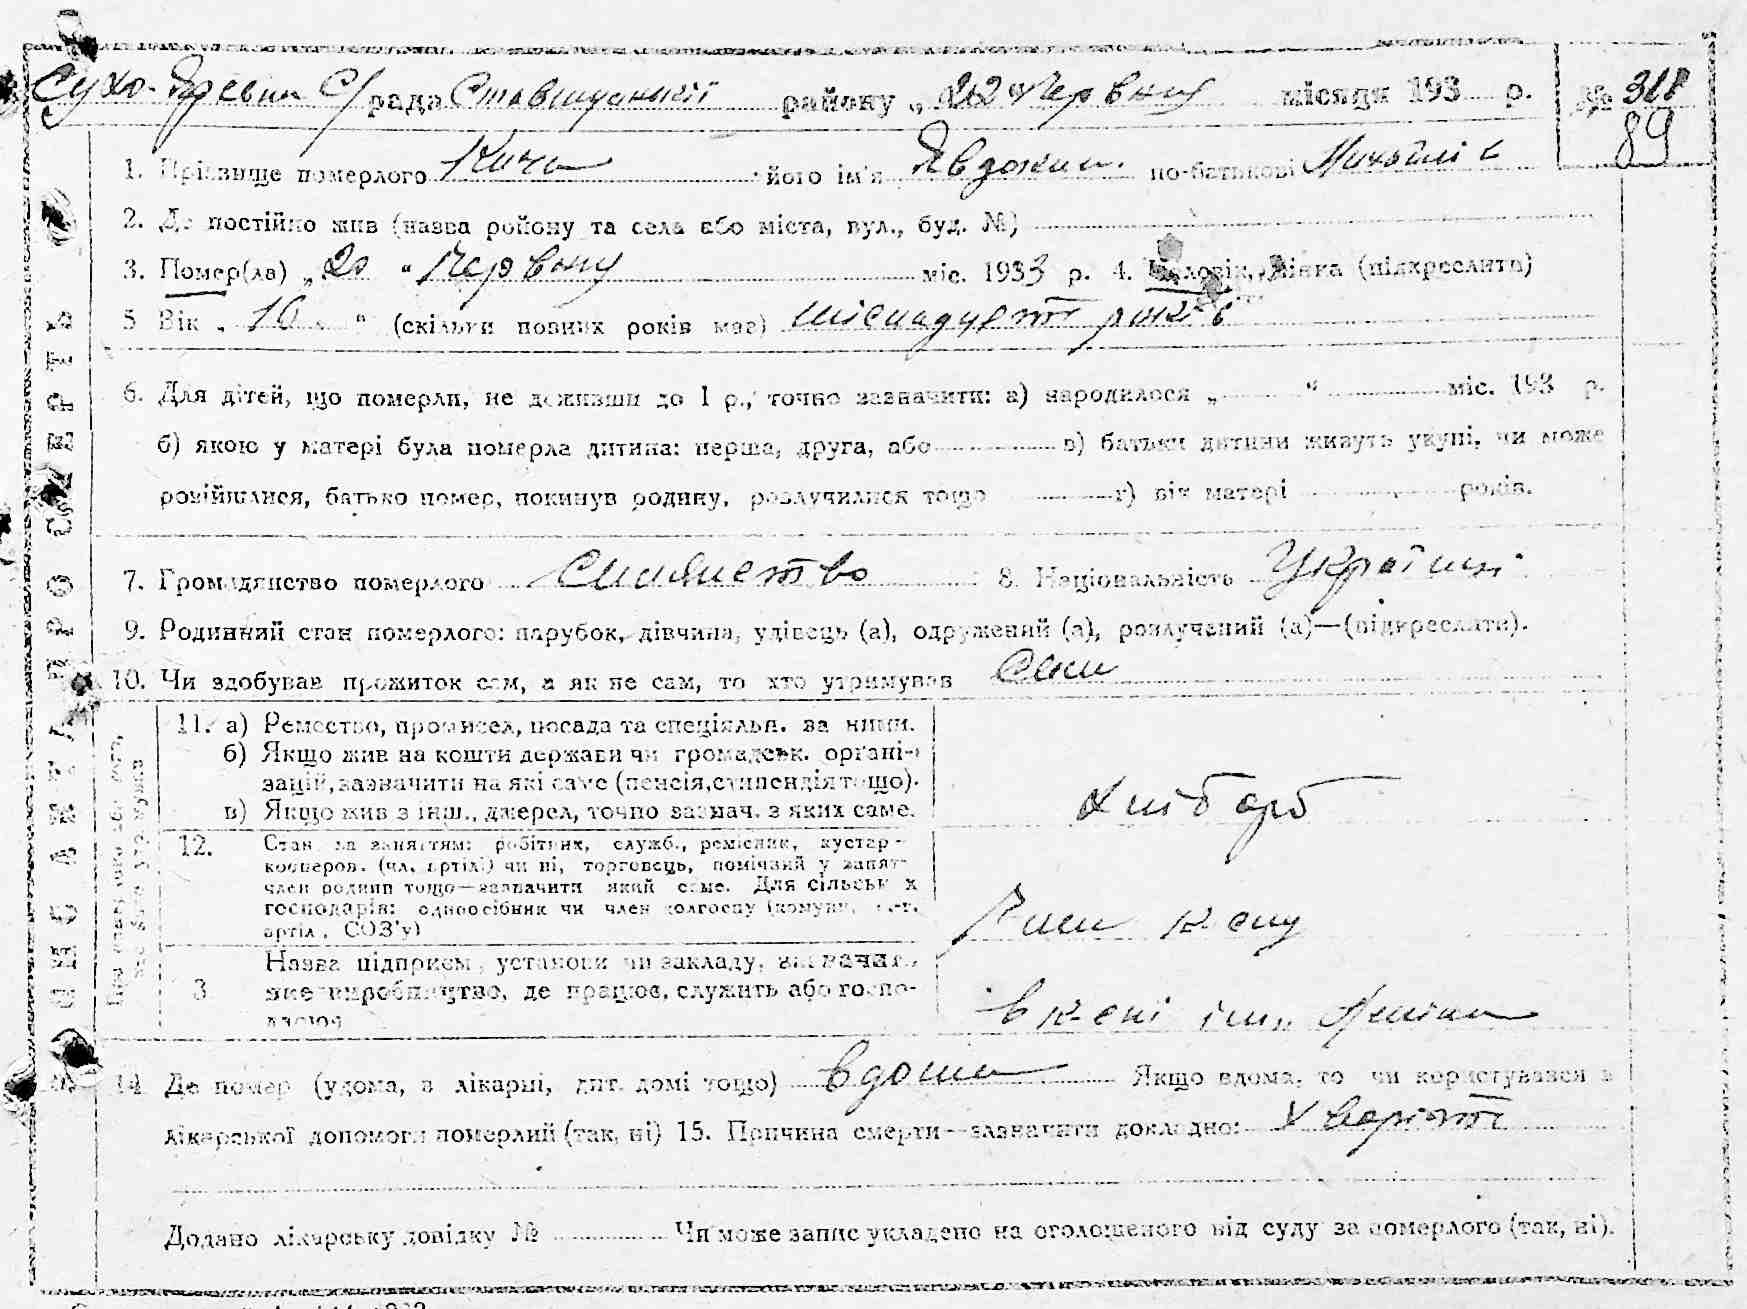 рада Ставищанської району „22" Червня місяця 193 р. № 318
89
1. Прізвище померлого його ім'я Явдокия по-батькові
2. Де постійно жив (назва району та села або міста, вул., буд. №)
3. Помер(ла) „20" Червня міс. 1933 р. 4. Чоловік, жінка (підкреслити)
5 Вік „16" (скільки повних років має) шіснадцять років
6. Для дітей, що померли, не доживши до 1 р., точно зазначити: а) народилося „ " міс. 193 р.
б) якою у матері була померла дитина: перша, друга, або в) батьки дитини живуть укупі, чи може
розійшлися, батько помер, покинув родину, розлучилися тощо г) вік матері років.
7. Громадянство померлого 8. Національність
9. Родинний стан померлого: парубок, дівчина, удівець (а), одружений (а), розлучений (а)—(підкреслити).
10. Чи здобував прожиток сам, а як не сам, то хто утримував Сам
11. а) Ремество, промисел, посада та спеціяльн. за ними.
б) Якщо жив на кошти держави чи громадськ. органі-
зацій, зазначити на які саме (пенсія, стипендія тощо).
в) Якщо жив з інш., джерел, точно зазнач. з яких саме.
хлібороб
12. Стан за заняттям: робітник, служб., ремісник, кустар-
кооперов. (чл. артілі) чи ні, торговець, помічний у занят-
член родини тощо—зазначити який саме. Для сільськ х
господарів: одноосібник чи член колгоспу (комуни,
артіл, СОЗ'у)
Член
Назва підприєм, установи чи закладу, зазначати
3 яке виробництво, де працює, служить або госпо-
дарює
в ім. Леніна
14 Де помер (удома, в лікарні, дит. домі тощо) вдома Якщо вдома, то чи користувався з
лікарської допомоги померлий (так, ні) 15. Причина смерти—зазначити докладно:
Додано лікарську довідку № Чи може запис укладено на оголошеного від суду за померлого (так, ні).